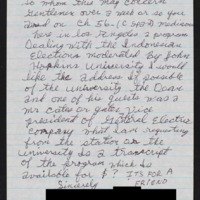 To whom this may concern
Gentlemen over a week or so you
aired on Ch 56
here in Los Angeles a program
Dealing with the Indonesian
Elections moderated by John
Hopkins University I would
like the address if possible
of the University the Dean
and one of his guests was a
Mr. Cates or Gates Vice
President of General Electric
Company what I am requesting
from the station or the
University is a transcript
of the program which is
available for $? ITS FOR A
Sincerely FRIEND